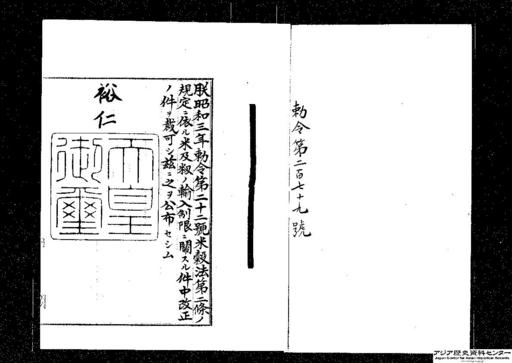 勅令第二百七十九號
朕昭和三年勅令第二十二號米穀法第二條ノ
規定ニ依ル米及籾ノ輸入制限ニ關スル件中改正
ノ件ヲ裁可シ茲ニ之ヲ公布セシム
裕仁
天皇
御璽
アジア歴史資料センター
Japan Center for Asian Historical Records